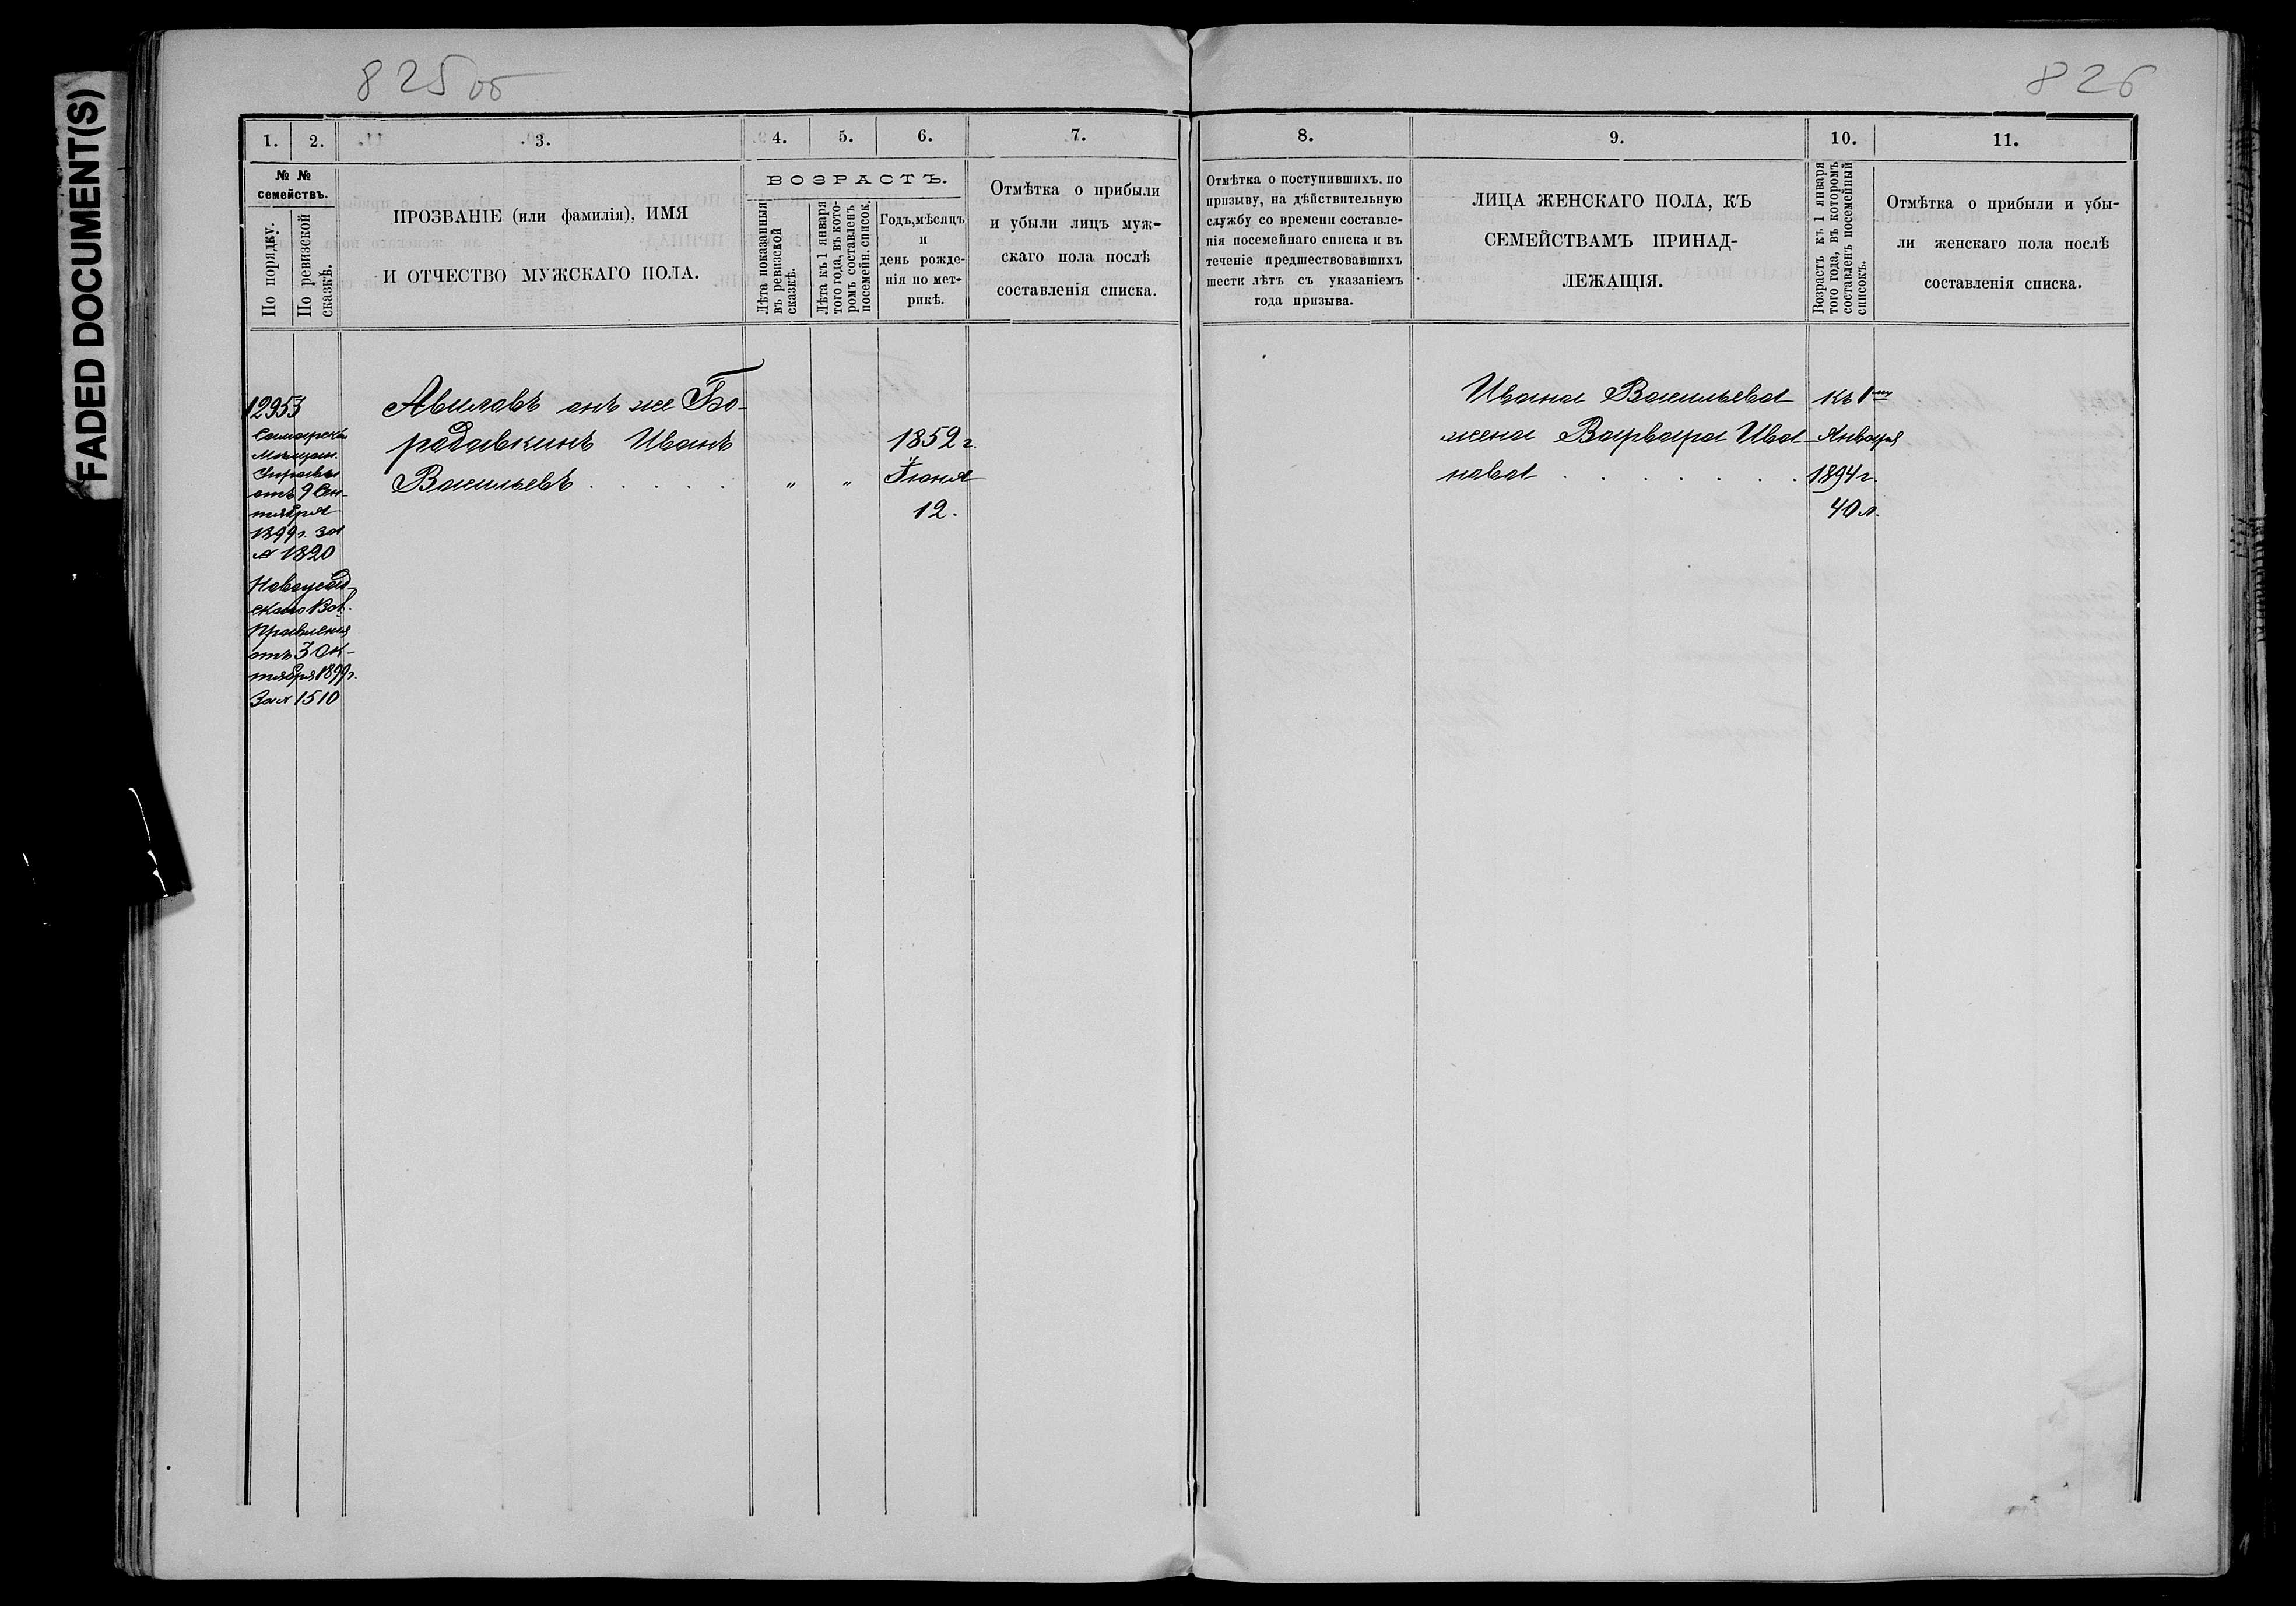 FADED DOCUMENT(S)
825 об
826
1. 2. 3. 4. 5. 6. 7.
№ №
семействъ.
По порядку.
По ревизской
сказкѣ.
ПРОЗВАНІЕ (или фамилія), ИМЯ
И ОТЧЕСТВО МУЖСКАГО ПОЛА.
ВОЗРАСТЪ.
Лѣта показанныя
въ ревизской
сказкѣ.
Лѣта къ 1 января
того года, въ кото-
ромъ составленъ
посемейн. список.
Годъ, мѣсяцъ
и
день рожде-
нія по мет-
рикѣ.
Отмѣтка о прибыли
и убыли лицъ муж-
скаго пола послѣ
составленія списка.
12953
Самарской
Мѣщан.
Управы
отъ 9 Сен-
тября
1899 г. за
№ 1820
Новоузенского Вол.
Правленія
отъ 3 Ок-
тября 1899 г.
За № 1510
Авиловъ онъ же Бо-
родавкинъ Иванъ
Васильевъ . . . . . " "
1852 г.
Іюня
12.
8. 9. 10. 11.
Отмѣтка о поступившихъ, по
призыву, на дѣйствительную
службу со времени составле-
нія посемейнаго списка и въ
теченіе предшествовавшихъ
шести лѣтъ съ указаніемъ
года призыва.
ЛИЦА ЖЕНСКАГО ПОЛА, КЪ
СЕМЕЙСТВАМЪ ПРИНАД-
ЛЕЖАЩІЯ.
Возрастъ къ 1 января
того года, въ которомъ
составленъ посемейный
списокъ.
Отмѣтка о прибыли и убы-
ли женскаго пола послѣ
составленія списка.
Ивана Васильева
жена Варвара Ива-
нова . . . . . . .
къ 1му
Января
1894 г.
40 л.